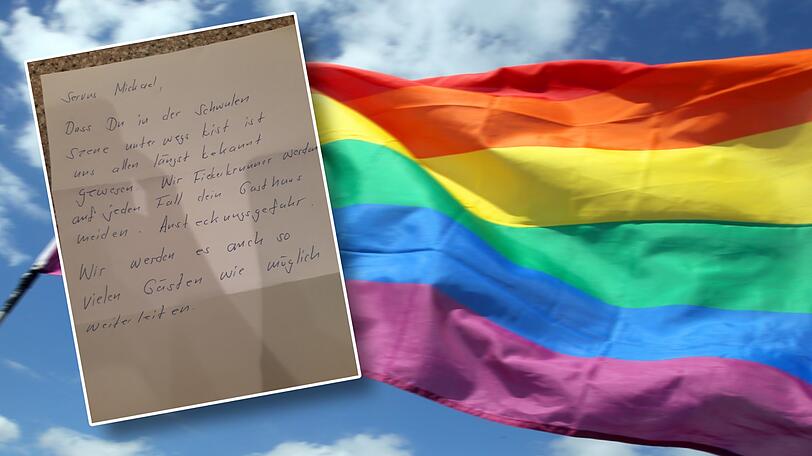 Servus Michael,
Dass Du in der Schwulen
Szene unterwegs bist ist
uns allen längst bekannt
gewesen. Wir Fieberbrunner werden
auf jeden Fall dein Gasthaus
meiden. Ansteckungsgefahr.
Wir werden es auch so
vielen Gästen wie möglich
weiterleiten.